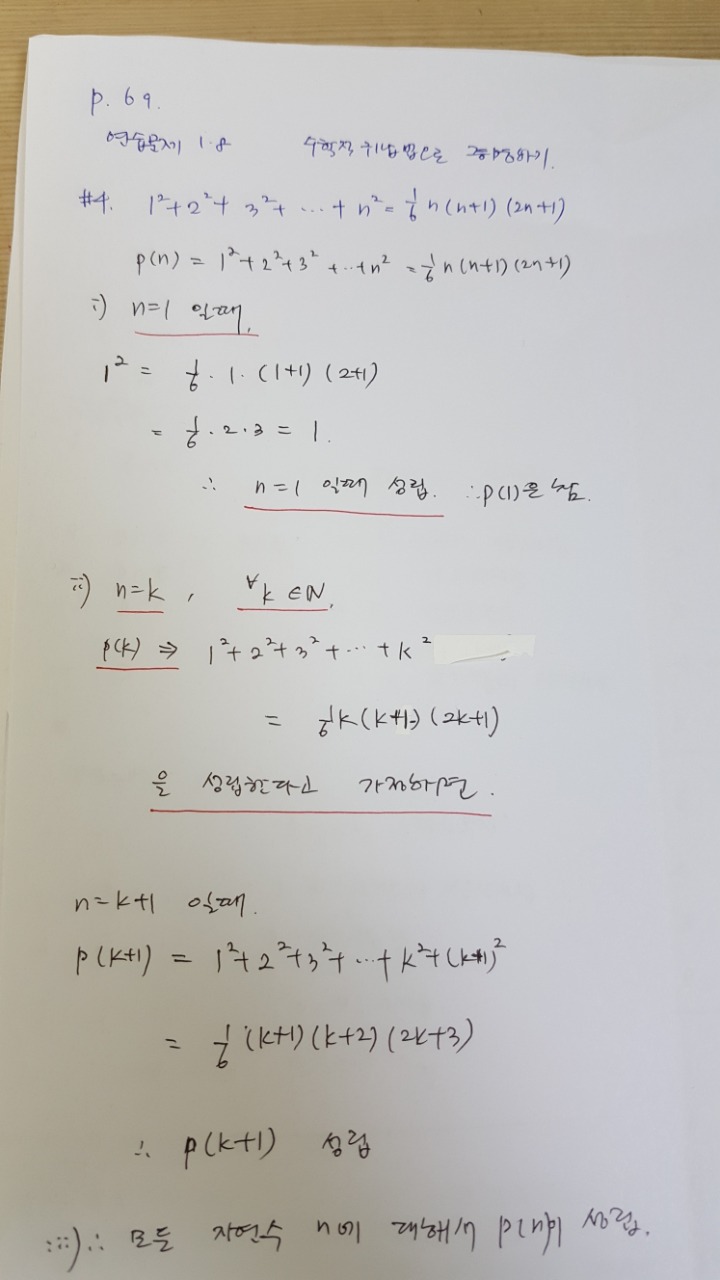 p. 69.
연습문제 1.8 수학적 귀납법으로 증명하기.
#4. 1²+2²+3²+ ... + n² = 1/6 n(n+1)(2n+1)
p(n) = 1²+2²+3²+...+n² = 1/6 n(n+1)(2n+1)
i) n=1 일때,
1² = 1/6 · 1 · (1+1)(2+1)
= 1/6 · 2 · 3 = 1.
∴ n=1 일때 성립. ∴p(1)은 참.
ii) n=k , ∀k ∈ N,
p(k) ⇒ 1²+2²+3²+ ... +k²
= 1/6 k(k+1)(2k+1)
을 성립한다고 가정하면.
n=k+1 일때.
p(k+1) = 1²+2²+3²+ ... +k²+(k+1)²
= 1/6 (k+1)(k+2)(2k+3)
∴ p(k+1) 성립
iii) ∴ 모든 자연수 n에 대해서 p(n)이 성립.